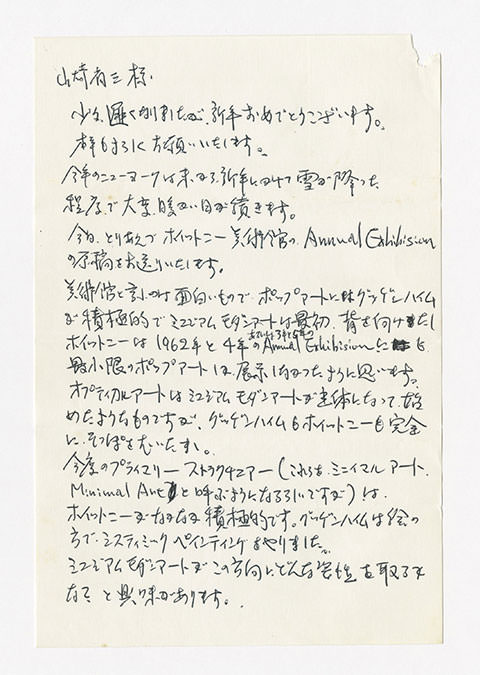 山崎省三様
少々遅くなりましたが、新年おめでとうございます。
本年もよろしくお願いいたします。
今年のニューヨークは末から新年にかけて雪が降った
程度で大変暖かい日が続きます。
今日、とりあえずホイットニー美術館の Annual Exhibision
の原稿をお送りいたします。
美術館と言うのは面白いもので、ポップアートにはグッゲンハイム
が積極的でミュジアムモダンアートは最初、背を向けましたし
ホイットニーは1962年と4年の Annual Exhibision にも
最小限のポップアートしか展示しなかったように思います。
オプティカルアートはミュジアムモダンアートが主体になって始
めたようなものですが、グッゲンハイムもホイットニーも完全
にそっぽをむいたし。
今度のプライマリーストラクチュアー(これを、ミニイマルアート、
Minimal Art と呼ぶようになるらしいですが)は、
ホイットニーがなかなか積極的です。グッゲンハイムは絵の
方で、システィミックペインティングをやりました。
ミュジアムモダンアートがこの方向にどんな姿勢を取るか
なぞと興味があります。